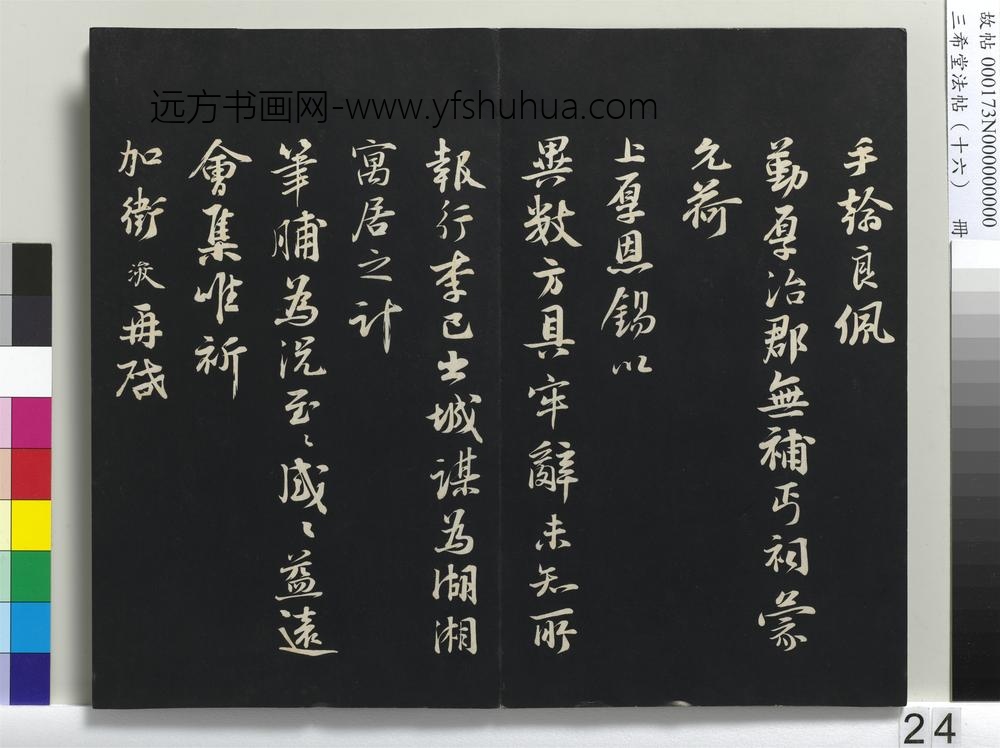 手翰良佩
勤厚治郡無補丐祠蒙
允荷
上厚恩錫以
異数方具牢辭未知所
報行李已出城謀為湖湘
寓居之計
筆脯為况至〻感〻益遠
會集唯祈
加衛 浚再啓
远方书画网-www.yfshuhua.com
故帖 000173N000000000
三希堂法帖（十六） 冊
24